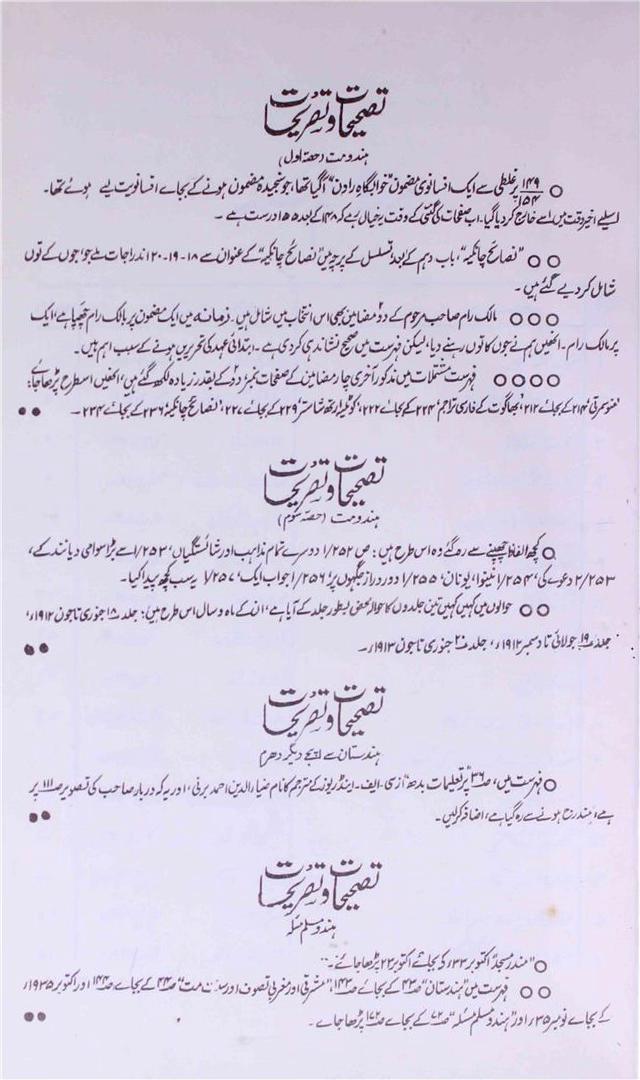 تصحیحات و تصریحات
ہندومت (حصۂ اول)
۱۴۹/۱۵۴ پر غلطی سے ایک افسانوی مضمون "خوابگاہِ رادن" آگیا تھا، جو سنجیدہ مضمون ہونے کے بجاے افسانویت لیے ہوئے تھا۔
اسلیے اخیر وقت میں اسے خارج کر دیا گیا۔ اب صفحات کی گنتی کے وقت یہ خیال رہے کہ ۱۴۸ کے بعد ۱۵۵ درست ہے۔
"نصائح چانکیہ"، باب دہم کے بعد تسلسل کے پرچہ میں "نصائح چانکیہ" کے عنوان سے ۱۸-۱۹-۲۰ اندراجات ملے جو جوں کے توں
شامل کر دیے گئے ہیں۔
مالک رام صاحب مرحوم کے دو مضامین بھی اس انتخاب میں شامل ہیں۔ زمانہ میں ایک مضمون پر مالک رام چھپا ہے، ایک
پر مالک رام۔ انھیں ہم نے جوں کا توں رہنے دیا، لیکن فہرست میں صحیح نشاندہی کردی ہے۔ ابتدائی عہد کی تحریریں ہونے کے سبب اہم ہیں۔
فہرست مشتملات میں مذکور آخری چار مضامین کے صفحات نمبر دو کے بقدر زیادہ لکھ گئے ہیں، انھیں اسطرح پڑھا جاے:
'منوسمرتی' ۲۱۴ کے بجاے ۲۱۲، 'بھاگوت کے فارسی تراجم' ۲۲۴ کے بجاے ۲۲۲، 'کوٹلیا ارتھ شاستر' ۲۲۹ کے بجاے ۲۲۷، 'نصائح چانکیہ' ۲۳۶ کے بجاے ۲۳۴۔
تصحیحات و تصریحات
ہندومت (حصۂ سوم)
کچھ الفاظ چھپنے سے رہ گئے وہ اس طرح ہیں: ص ۱/۲۵۲ دوسرے تمام مذاہب اور شائستگیاں، ۱/۲۵۳ اسے بڑا سوامی دیانند کے،
۲/۲۵۳ دعوے کی، ۱/۲۵۴ نینوا، یونان، ۱/۲۵۵ دور دراز جگہوں پر ۱/۲۵۶ جواب ایک، ۱/۲۵۷ یہ سب کچھ پیدا کیا۔
حوالوں میں کہیں کہیں تین جلدوں کا حوالہ محض بطور جلد کے آیا ہے، ان کے ماہ و سال اس طرح ہیں: جلد ۱۸ جنوری تا جون ۱۹۱۲ء،
جلد ۱۹ جولائی تا دسمبر ۱۹۱۲ء، جلد ۲۰ جنوری تا جون ۱۹۱۳ء۔
تصحیحات و تصریحات
ہندستان سے اٹھے دیگر دھرم
فہرست میں، ص ۳۶ پر تعلیمات بدھ از سی۔ ایف۔ اینڈریوز کے مترجم کا نام ضیاء الدین احمد برنی، اور یہ کہ دربار صاحب کی تصویر ص ۱۱۱ پر
ہے، مندرج ہونے سے رہ گیا ہے، اضافہ کر لیں۔
تصحیحات و تصریحات
ہندو مسلم مسئلہ
"مندر مسجد" اکتوبر ۱۳۳ کے بجائے اکتوبر ۲۳ پڑھا جائے۔
فہرست میں "ہندستان" ص ۴۳ کے بجاے ص ۱۴۳، "مشرقی اور مغربی تصوف اور سنت مت" ص ۴۴ کے بجاے ص ۱۴۴ اور اکتوبر ۱۹۳۵ء
کے بجاے نومبر ۳۵ء اور "ہندو مسلم مسئلہ" ص ۷۲ کے بجاے ص ۱۷۲ پڑھا جاے۔